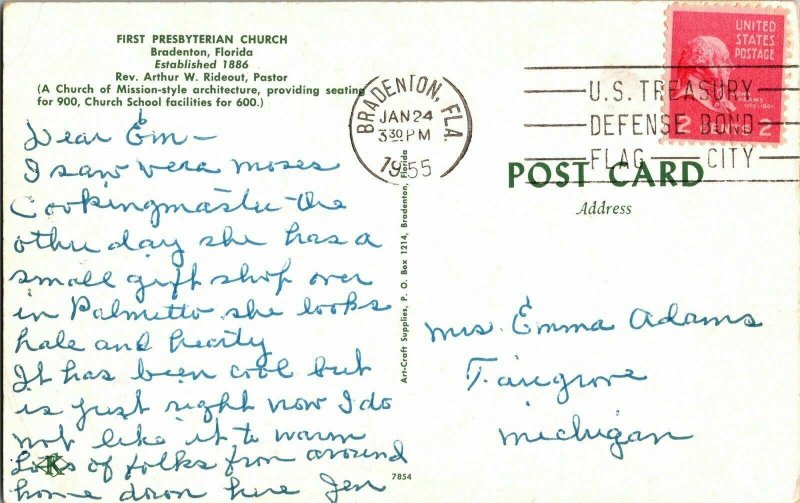 FIRST PRESBYTERIAN CHURCH
Bradenton, Florida
Established 1886
Rev. Arthur W. Rideout, Pastor
(A Church of Mission-style architecture, providing seating
for 900, Church School facilities for 600.)
Dear Em—
I saw vera moses
Cookingmaster the
other day she has a
small gift shop over
in Palmetto she looks
hale and hearty
It has been cool but
is just right now I do
not like it to warm
Lots of folks from around
home down here Jen
K
7854
Art-Craft Supplies, P. O. Box 1214, Bradenton, Florida
BRADENTON, FLA.
JAN 24
3 30 PM
1955
UNITED
STATES
POSTAGE
JOHN
ADAMS
2 CENTS 2
U.S. TREASURY
DEFENSE BOND
FLAG CITY
POST CARD
Address
Mrs. Emma Adams
Fairgrove
Michigan